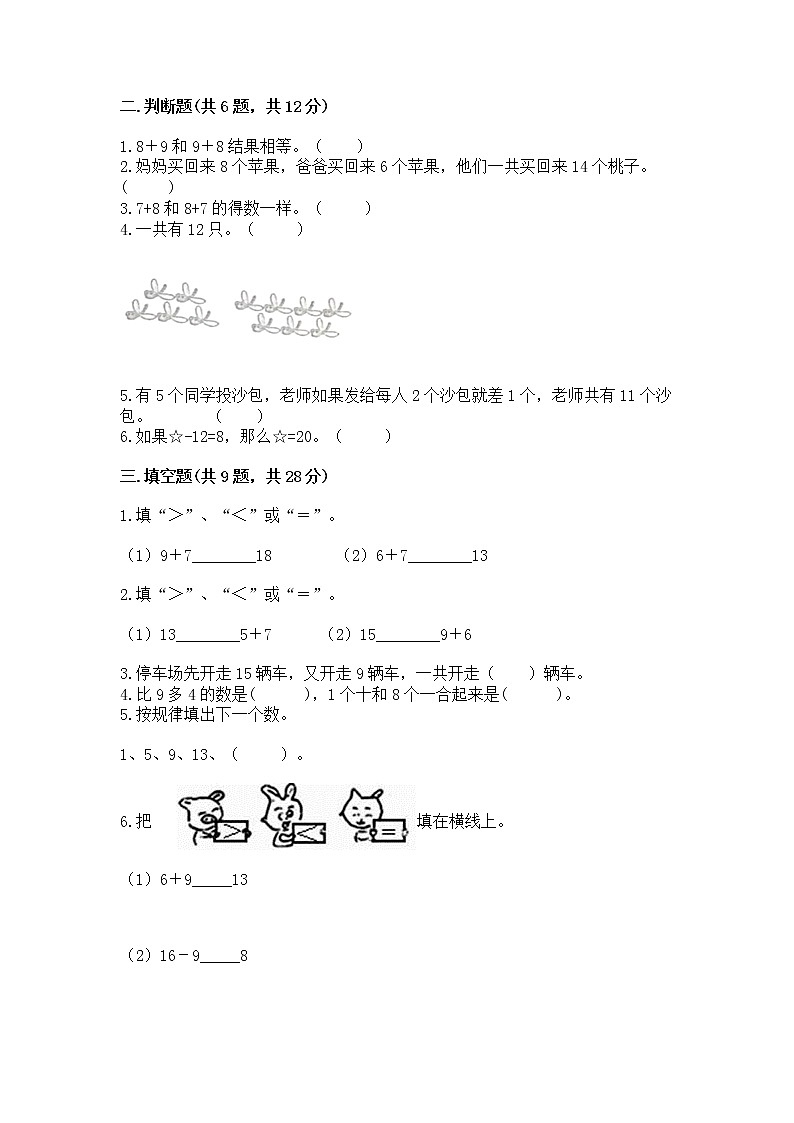 二.判断题(共6题，共12分)
1.8＋9和9＋8结果相等。（　　）
2.妈妈买回来8个苹果，爸爸买回来6个苹果，他们一共买回来14个桃子。
（　　）
3.7+8和8+7的得数一样。（　　）
4.一共有12只。（　　）
5.有5个同学投沙包，老师如果发给每人2个沙包就差1个，老师共有11个沙
包。　　　　（　　）
6.如果☆-12=8，那么☆=20。（　　）
三.填空题(共9题，共28分)
1.填“＞”、“＜”或“＝”。
（1）9＋7________18　　　　（2）6＋7________13
2.填“＞”、“＜”或“＝”。
（1）13________5＋7　　　（2）15________9＋6
3.停车场先开走15辆车，又开走9辆车，一共开走（　　）辆车。
4.比9多4的数是(　　　)，1个十和8个一合起来是(　　　)。
5.按规律填出下一个数。
1、5、9、13、（　　）。
6.把 ＞ ＜ ＝ 填在横线上。
（1）6＋9_____13
（2）16－9_____8